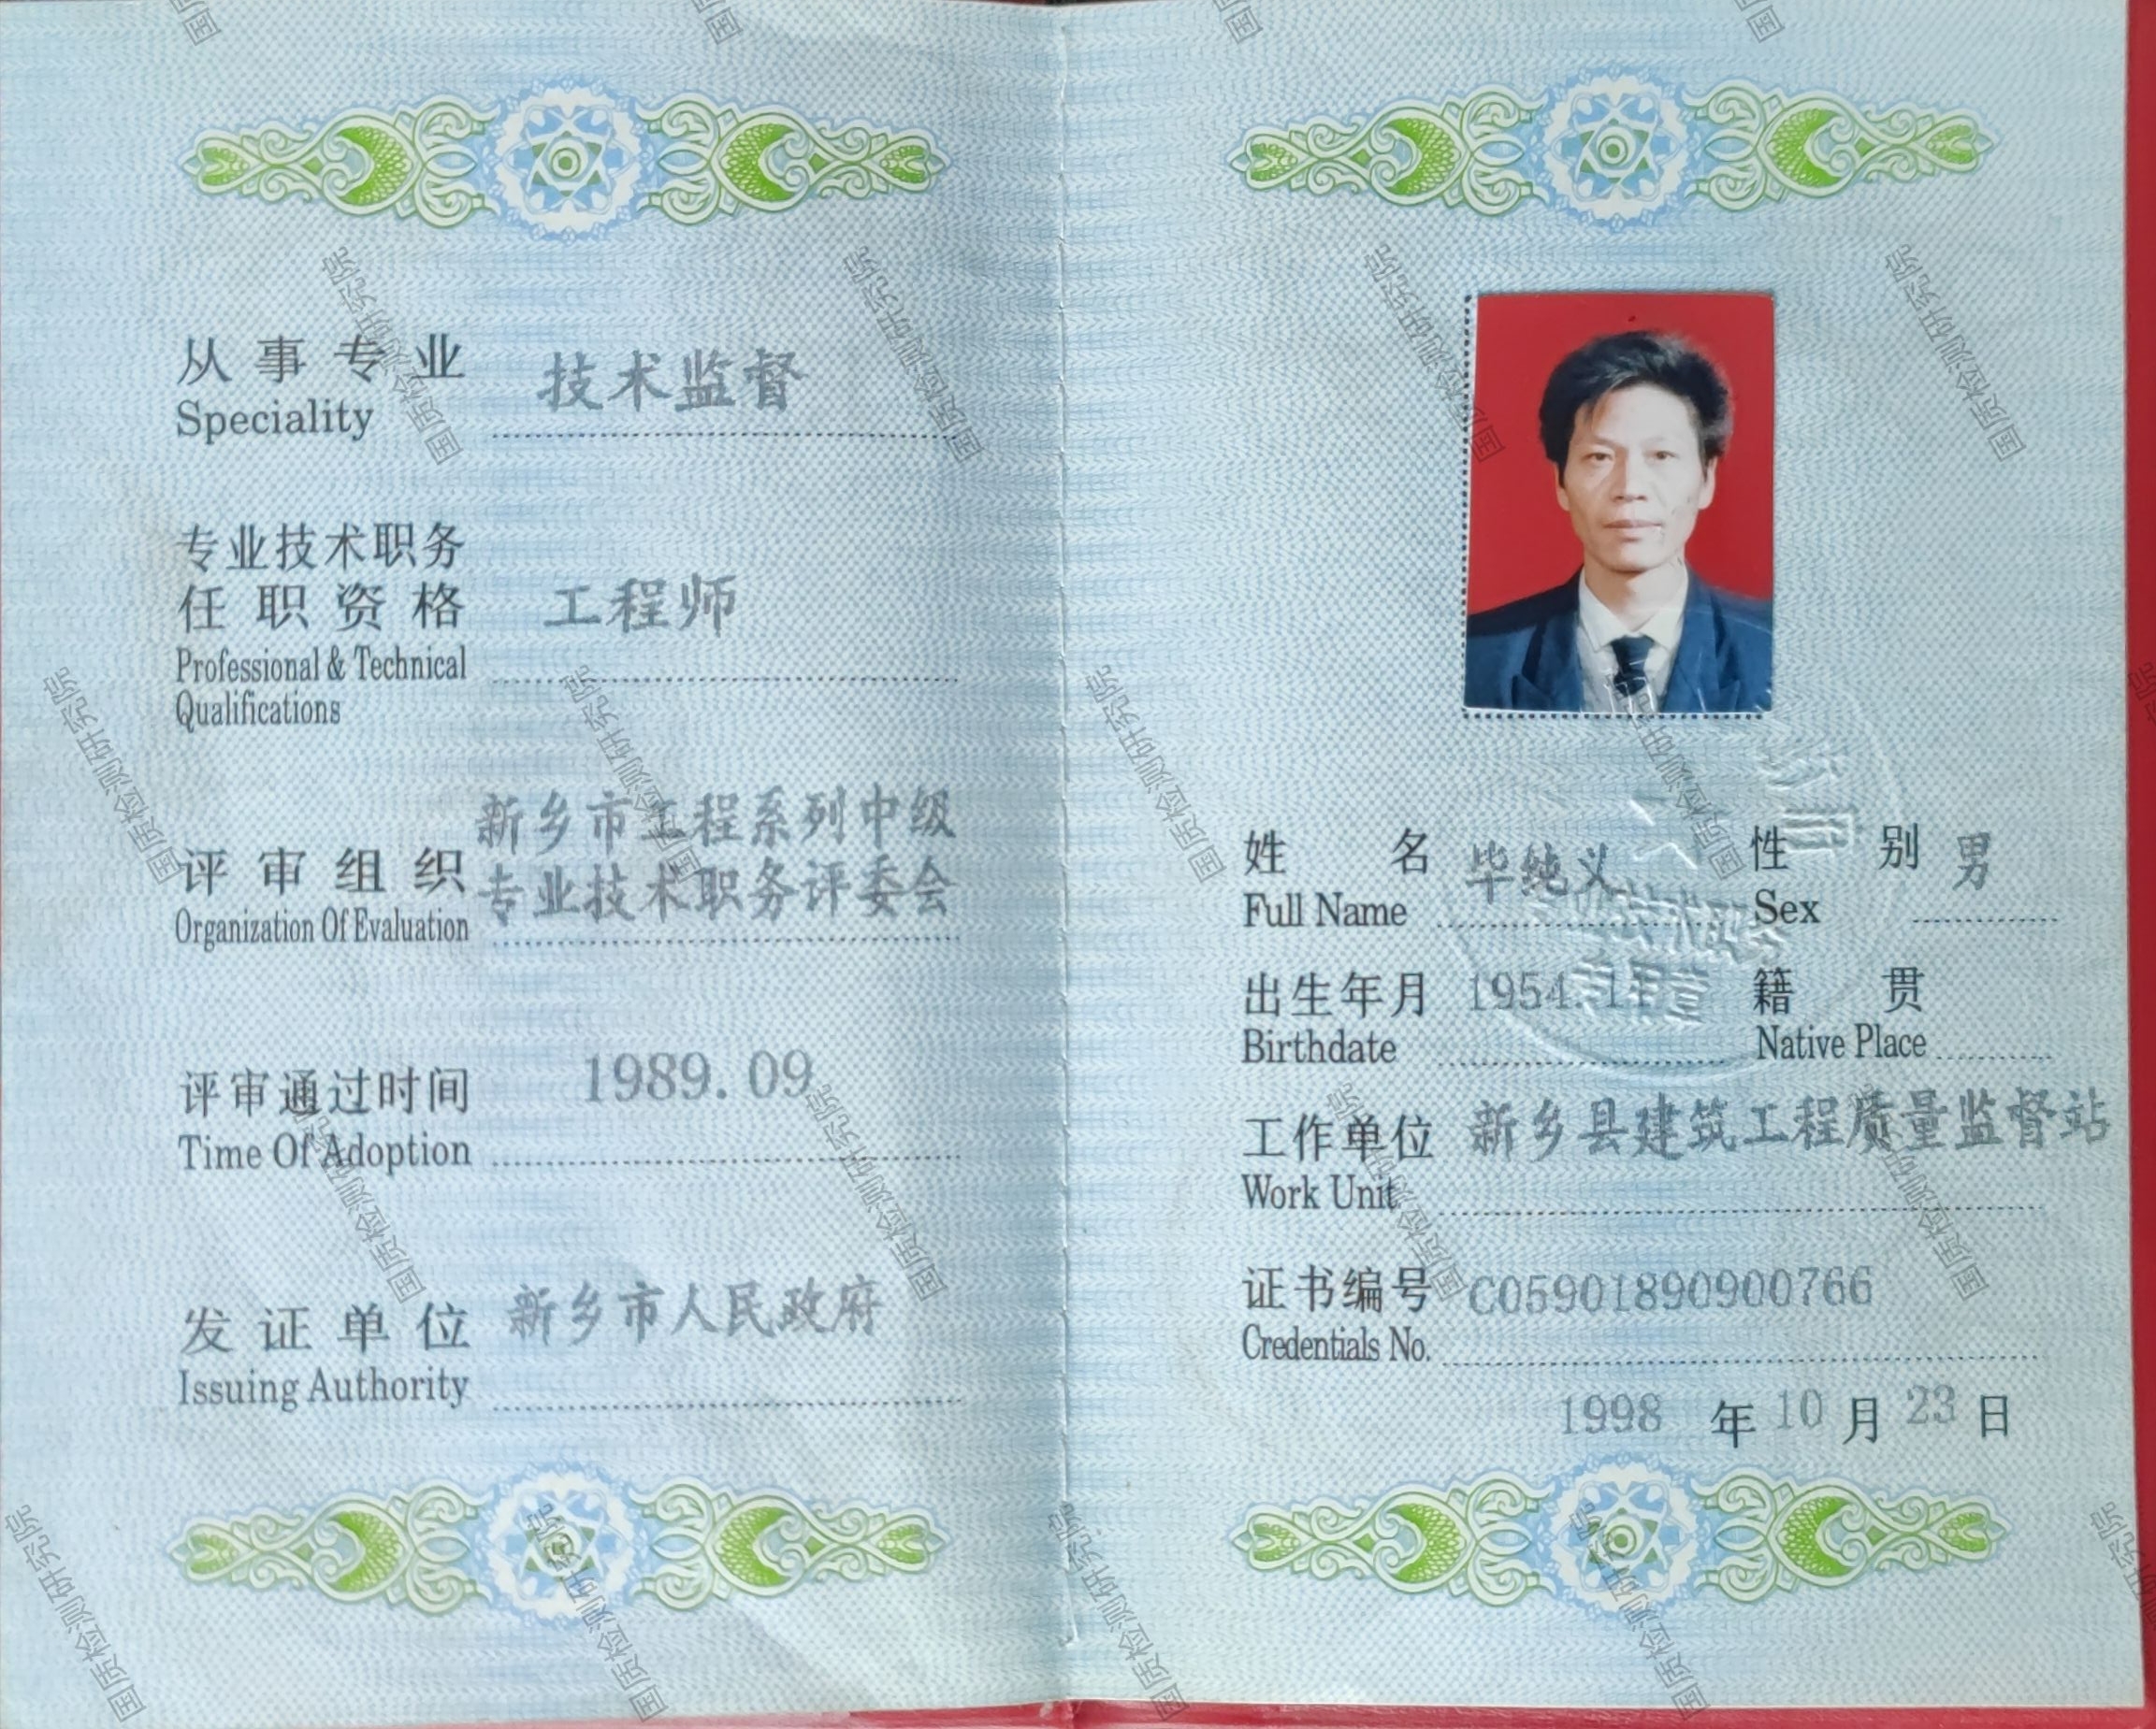 从事专业 技术监督
Speciality
专业技术职务
任职资格 工程师
Professional & Technical
Qualifications
新乡市工程系列中级
评审组织 专业技术职务评委会
Organization Of Evaluation
评审通过时间 1989.09
Time Of Adoption
发证单位 新乡市人民政府
Issuing Authority
姓名 毕纯义 性别 男
Full Name Sex
技术职务
专用章
出生年月 1954.11 籍贯
Birthdate Native Place
工作单位 新乡县建筑工程质量监督站
Work Unit
证书编号 C05901890900766
Credentials No.
1998 年 10 月 23 日
国质检测研究院